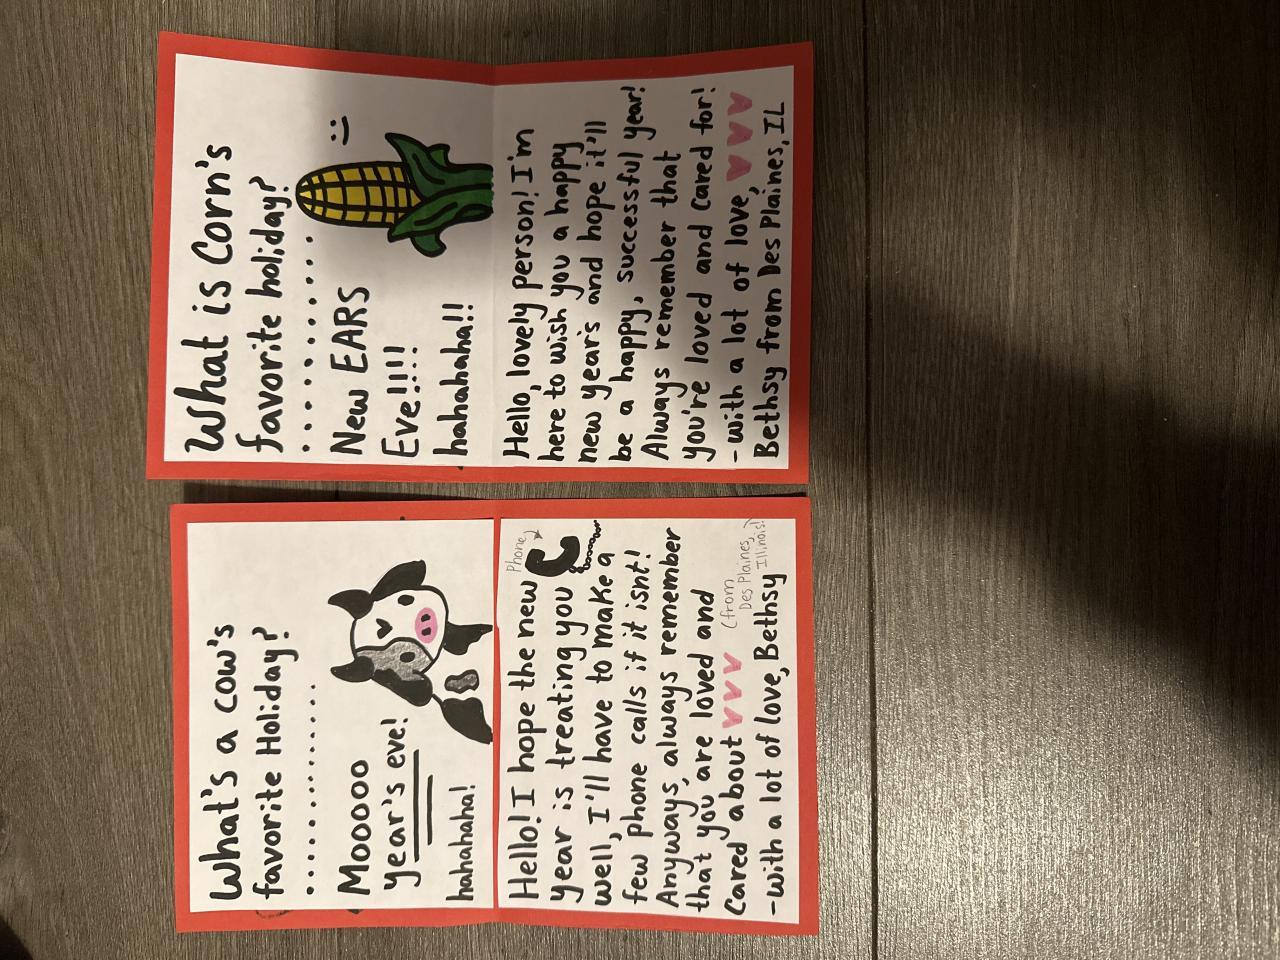 What's a cow's
favorite Holiday?
..............
Mooooo
year's eve!
hahahaha!
Hello! I hope the new
year is treating you
Phone
well, I'll have to make a
few phone calls if it isnt!
Anyways, always remember
that you are loved and
Cared about ♥♥♥
(from
Des Plaines,
Illinois!)
-With a lot of love, Bethsy
What is Corn's
favorite holiday?
............
New EARS
Eve!!!! :)
hahahaha!!
Hello, lovely person! I'm
here to wish you a happy
new year's and hope it'll
be a happy, successful year!
Always remember that
you're loved and cared for!
-with a lot of love, ♥♥♥
Bethsy from Des Plaines, IL